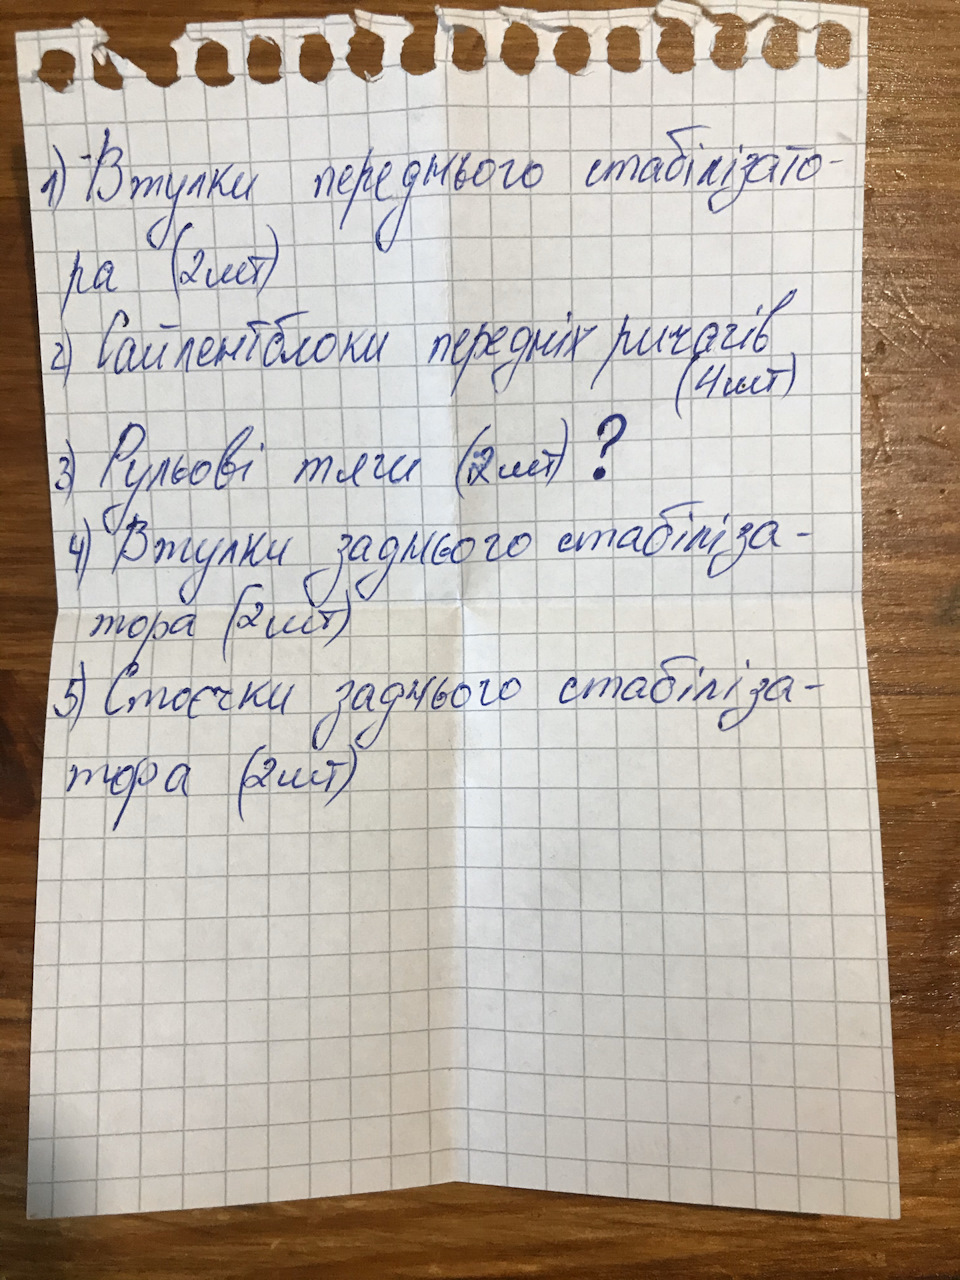 1) Втулки переднього стабілізато-
ра (2шт)
2) Сайлентблоки передніх ричагів
(4шт)
3) Рульові тяги (2шт) ?
4) Втулки заднього стабіліза-
тора (2шт)
5) Стоєчки заднього стабіліза-
тора (2шт)